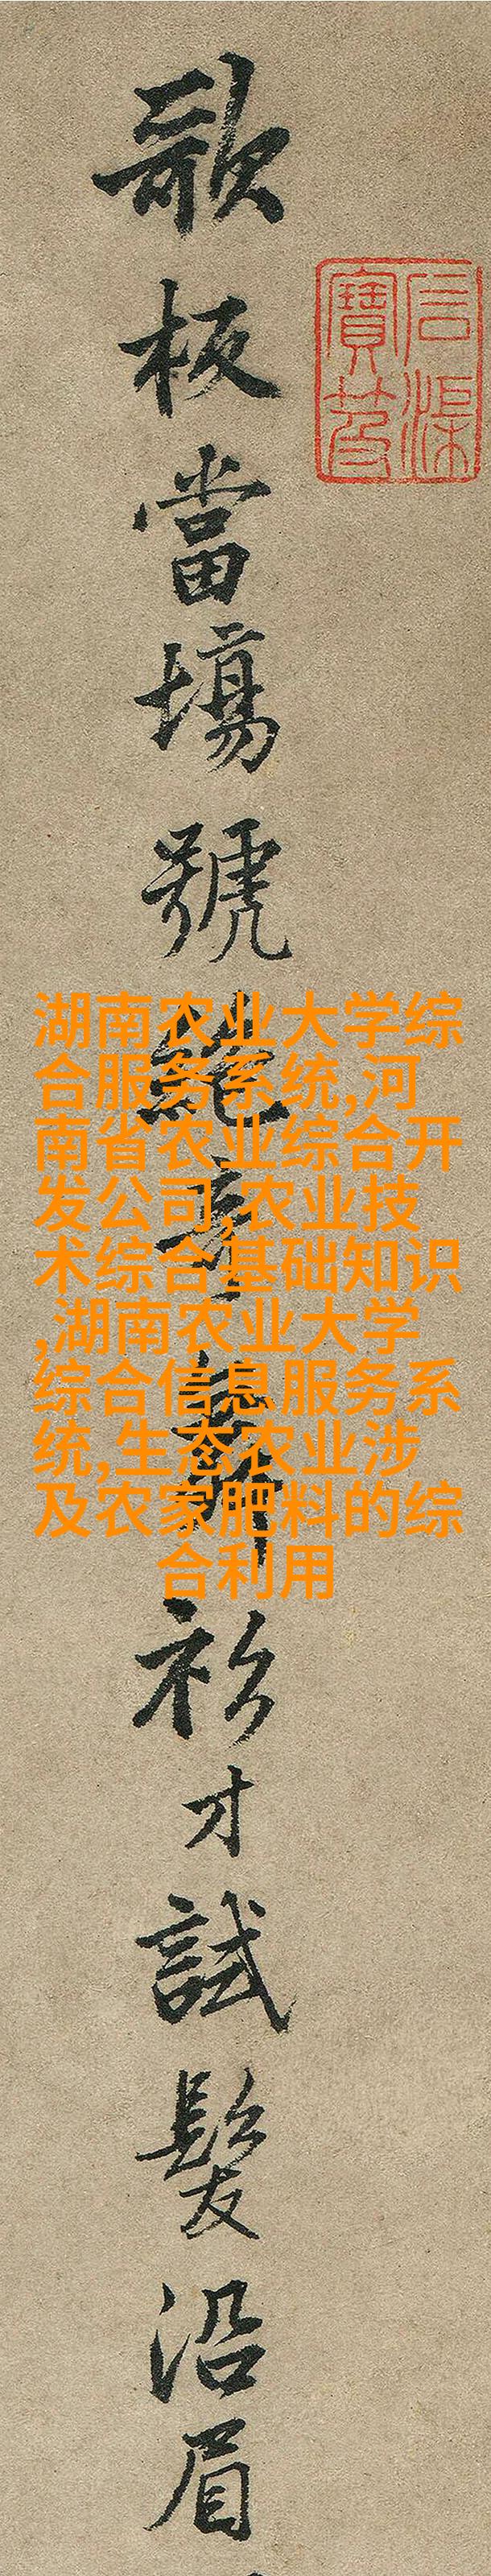 歌板當場號絶奇新衫才試髮沿眉
湖南农业大学综
合服务系统,河
南省农业综合开
发公司,农业技
术综合基础知识
,湖南农业大学
综合信息服务系
统,生态农业涉
及农家肥料的综
合利用